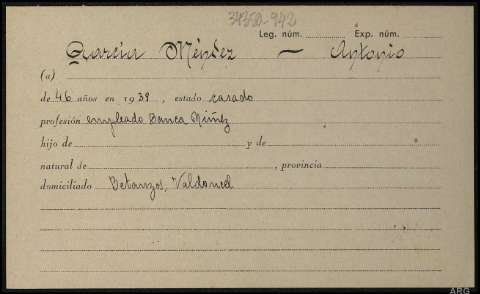 34350-942
Leg. núm. Exp. núm.
García Méndez — Antonio
(a)
de 46 años en 1939, estado casado
profesión empleado Banca Núñez
hijo de y de
natural de , provincia
domiciliado Betanzos, Valdoncel
ARG